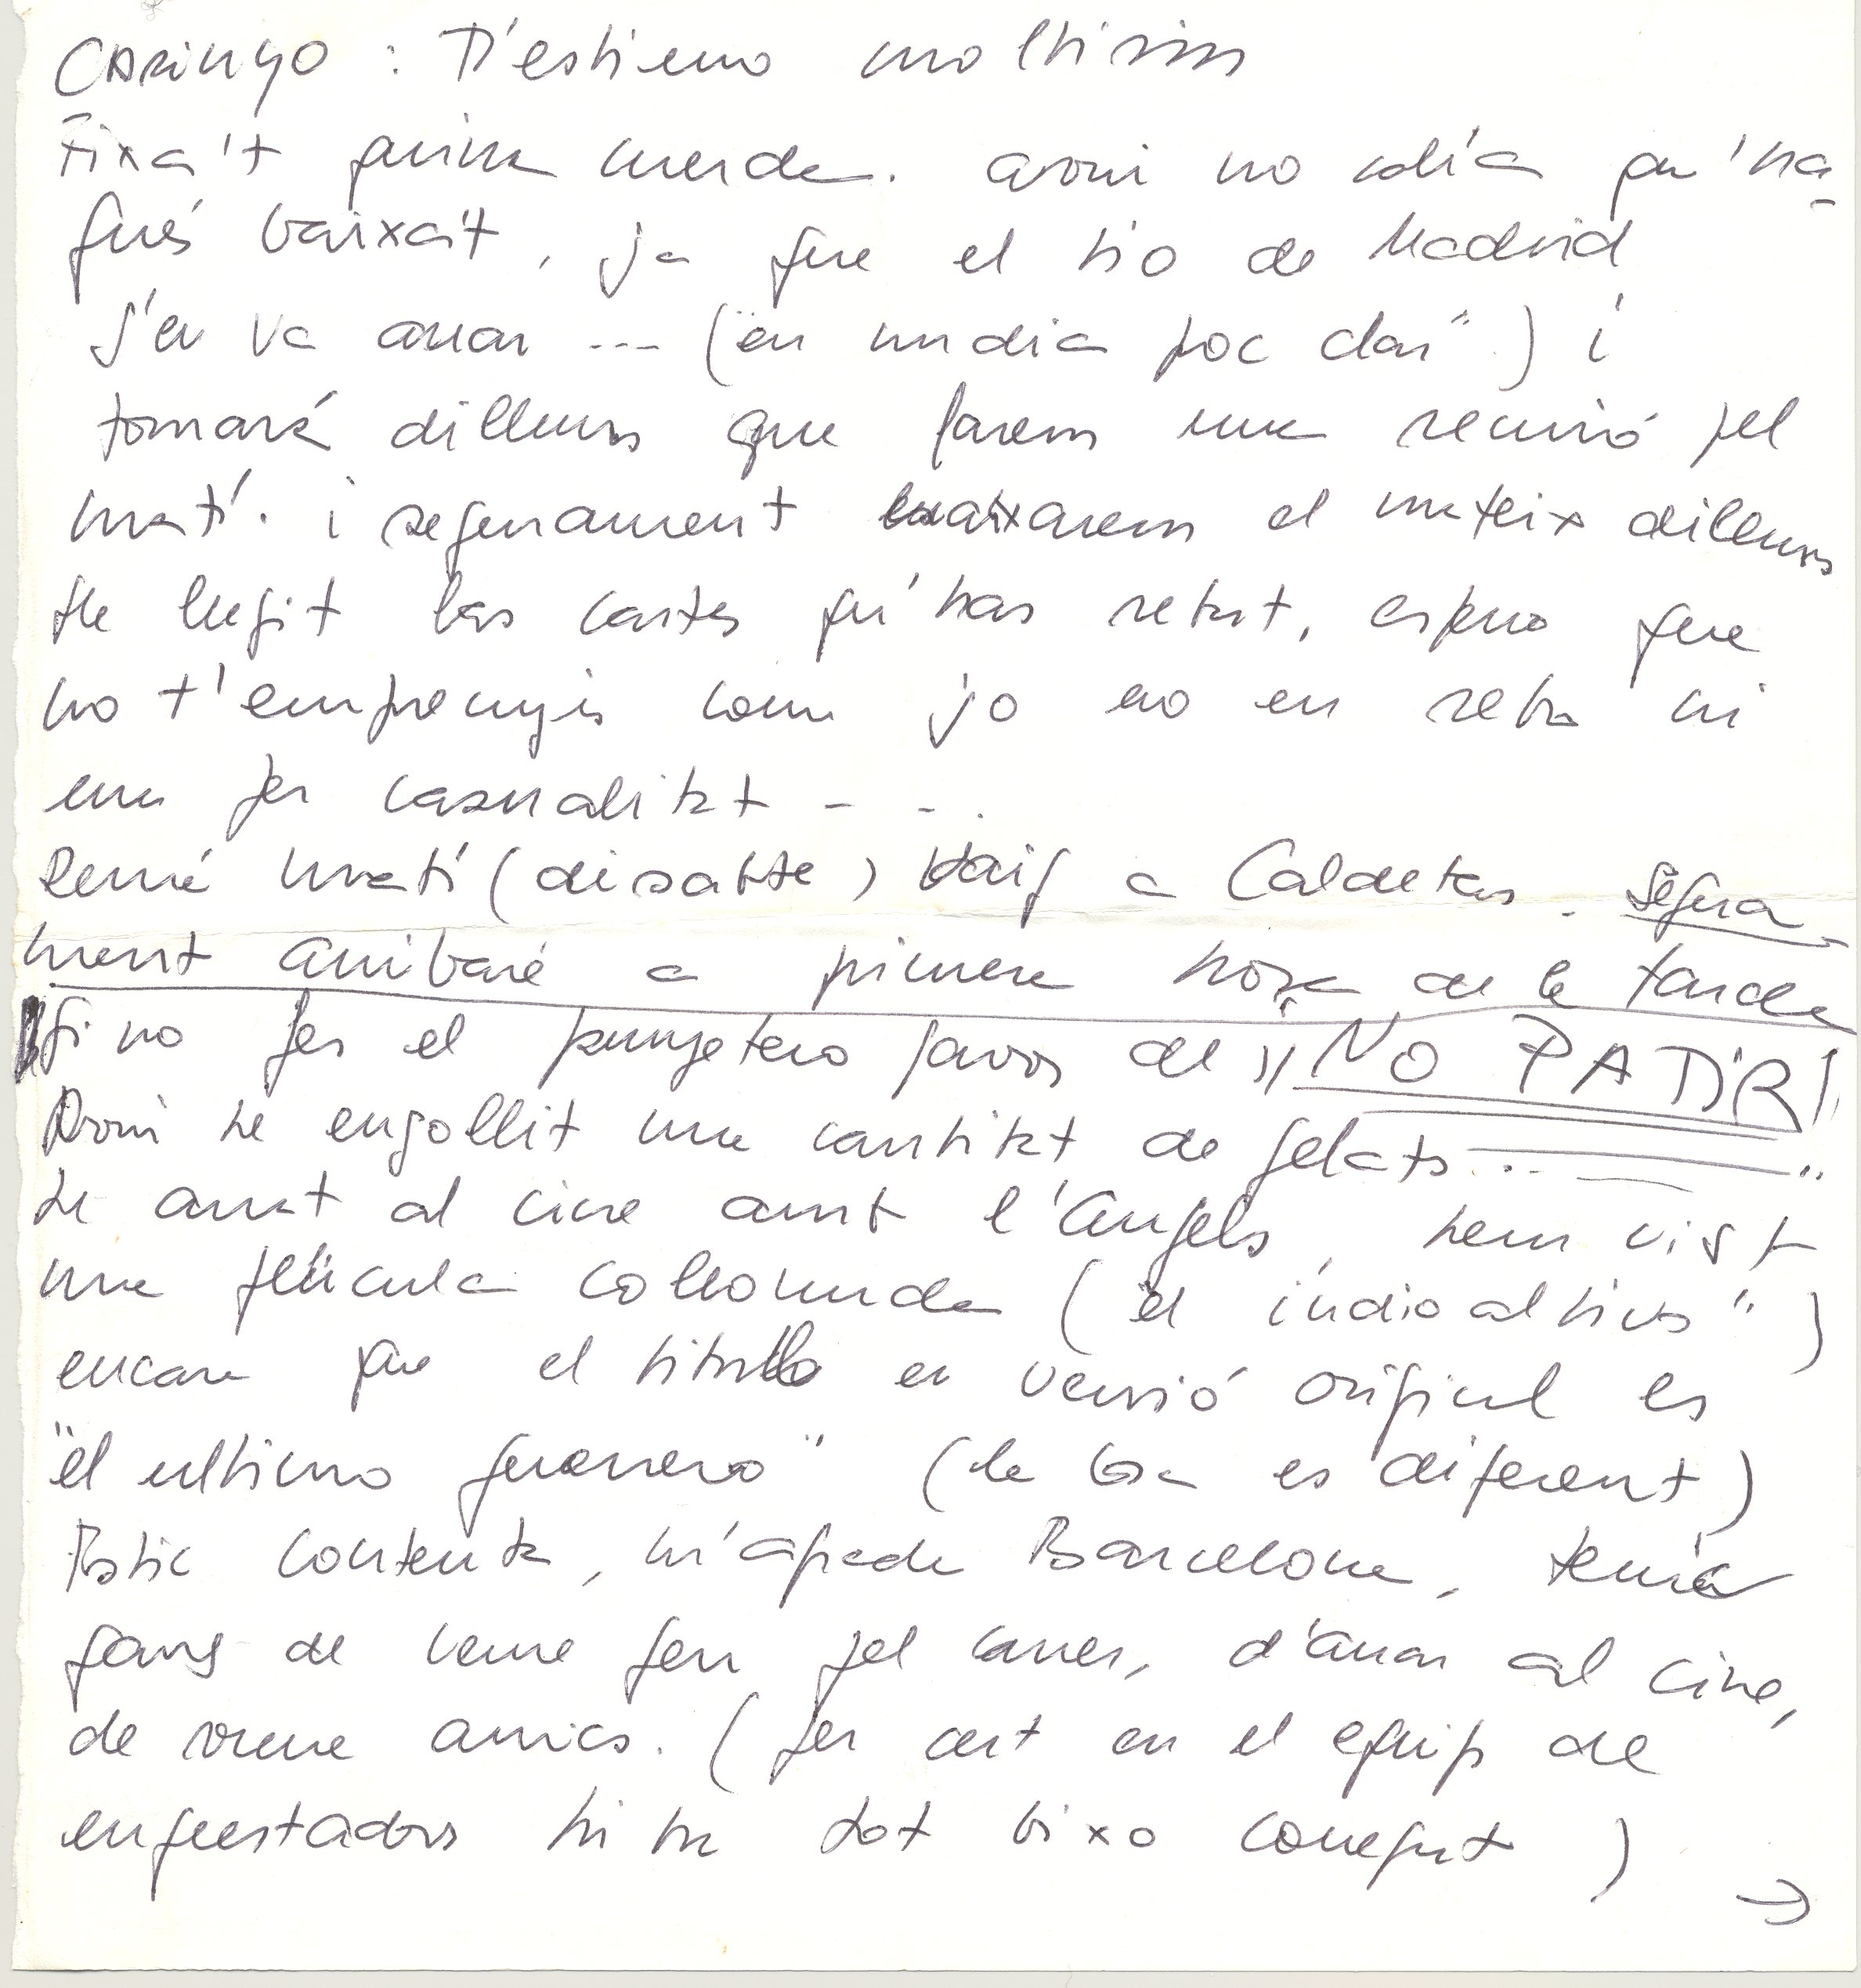 CARINYO : T'estimo moltisim
Fixa't quina merda. avui no calía qu'ha-
gués baixat, ja que el tio de Madrid
s'en va anar --- ("en un dia poc clar") i
tornará dilluns que farem una reunió pel
matí. i segurament baixarem el mateix dilluns
He llegit las cartes qu'has rebut, espero que
no t'emprenyis com jo no en rebo ni
una per casualitat - - .
Demá matí (disabte) vaig a Caldetas. Segura-
ment arribaré a primera hora de la tarde
Si no fes el punyetero favor de ¡¡NO PATIR!!
Avui he engollit una cantitat de gelats ...
He anat al cine amb l'Angels, hem vist
una pelicula collonuda ("el indio altivo")
encara que el titullo en versió original es
"el ultimo guerrero" (la cosa es diferent)
Estic contenta, m'agrada Barcelona, tenía
gans de veure gen pel carrer, d'anar al cine,
de veure amics. (per cert en el equip de
enquestadors hi ha tot bixo conegut)
→